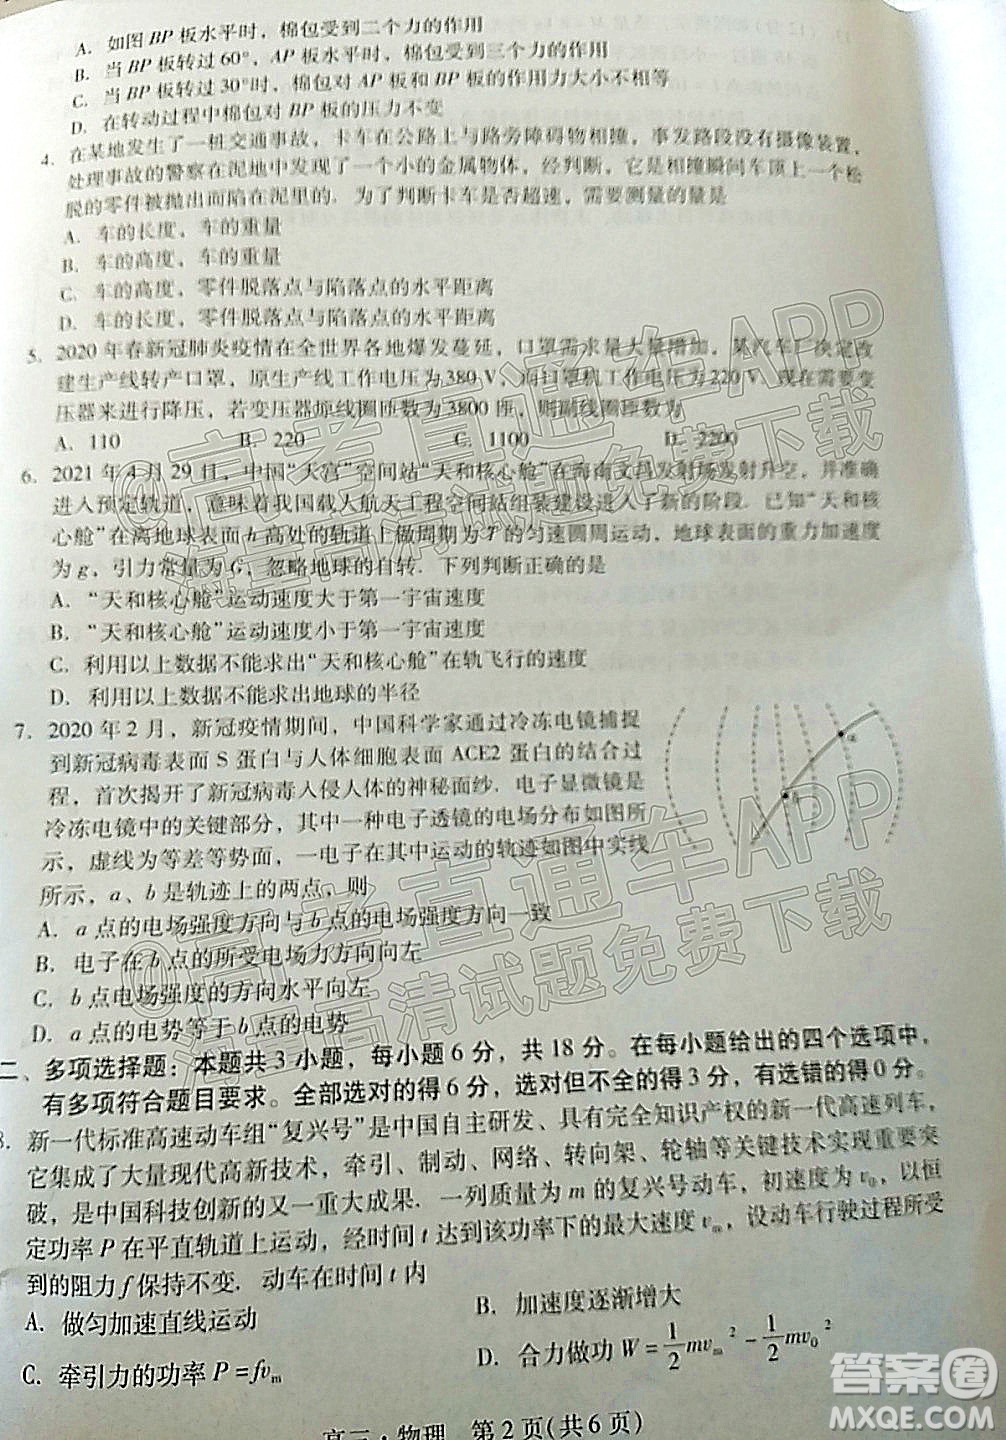 A. 如图 BP 板水平时，棉包受到二个力的作用
B. 当 BP 板转过 60°，AP 板水平时，棉包受到三个力的作用
C. 当 BP 板转过 30°时，棉包对 AP 板和 BP 板的作用力大小不相等
D. 在转动过程中棉包对 BP 板的压力不变
4. 在某地发生了一桩交通事故，卡车在公路上与路旁障碍物相撞，事发路段没有摄像装置，
处理事故的警察在泥地中发现了一个小的金属物体，经判断，它是相撞瞬间车顶上一个松
脱的零件被抛出而陷在泥里的．为了判断卡车是否超速，需要测量的量是
A. 车的长度，车的重量
B. 车的高度，车的重量
C. 车的高度，零件脱落点与陷落点的水平距离
D. 车的长度，零件脱落点与陷落点的水平距离
5. 2020 年春新冠肺炎疫情在全世界各地爆发蔓延，口罩需求量大量增加，某汽车厂决定改
建生产线转产口罩，原生产线工作电压为 380 V，而口罩机工作电压为 220 V．现在需要变
压器来进行降压，若变压器原线圈匝数为 3800 匝，则副线圈匝数为
A. 110 B. 220 C. 1100 D. 2200
6. 2021 年 4 月 29 日，中国“天宫”空间站“天和核心舱”在海南文昌发射场发射升空，并准确
进入预定轨道，意味着我国载人航天工程空间站组装建设进入了新的阶段．已知“天和核
心舱”在离地球表面 h 高处的轨道上做周期为 T 的匀速圆周运动，地球表面的重力加速度
为 g，引力常量为 G，忽略地球的自转．下列判断正确的是
A. “天和核心舱”运动速度大于第一宇宙速度
B. “天和核心舱”运动速度小于第一宇宙速度
C. 利用以上数据不能求出“天和核心舱”在轨飞行的速度
D. 利用以上数据不能求出地球的半径
7. 2020 年 2 月，新冠疫情期间，中国科学家通过冷冻电镜捕捉
到新冠病毒表面 S 蛋白与人体细胞表面 ACE2 蛋白的结合过
程，首次揭开了新冠病毒入侵人体的神秘面纱．电子显微镜是
冷冻电镜中的关键部分，其中一种电子透镜的电场分布如图所
示，虚线为等差等势面，一电子在其中运动的轨迹如图中实线
所示，a、b 是轨迹上的两点，则
A. a 点的电场强度方向与 b 点的电场强度方向一致
B. 电子在 b 点的所受电场力方向向左
C. b 点电场强度的方向水平向左
D. a 点的电势等于 b 点的电势
a
b
二、多项选择题：本题共 3 小题，每小题 6 分，共 18 分。在每小题给出的四个选项中，
有多项符合题目要求。全部选对的得 6 分，选对但不全的得 3 分，有选错的得 0 分。
8. 新一代标准高速动车组“复兴号”是中国自主研发、具有完全知识产权的新一代高速列车，
它集成了大量现代高新技术，牵引、制动、网络、转向架、轮轴等关键技术实现重要突
破，是中国科技创新的又一重大成果．一列质量为 m 的复兴号动车，初速度为 v₀，以恒
定功率 P 在平直轨道上运动，经时间 t 达到该功率下的最大速度 vₘ，设动车行驶过程所受
到的阻力 f 保持不变．动车在时间 t 内
A. 做匀加速直线运动 B. 加速度逐渐增大
C. 牵引力的功率 P=fvₘ D. 合力做功 W=1/2mvₘ²-1/2mv₀²
高三·物理 第 2 页(共 6 页)
@高考直通车APP
海量高清试题免费下载
@高考直通车APP
海量高清试题免费下载
答案圈
MXQE.COM